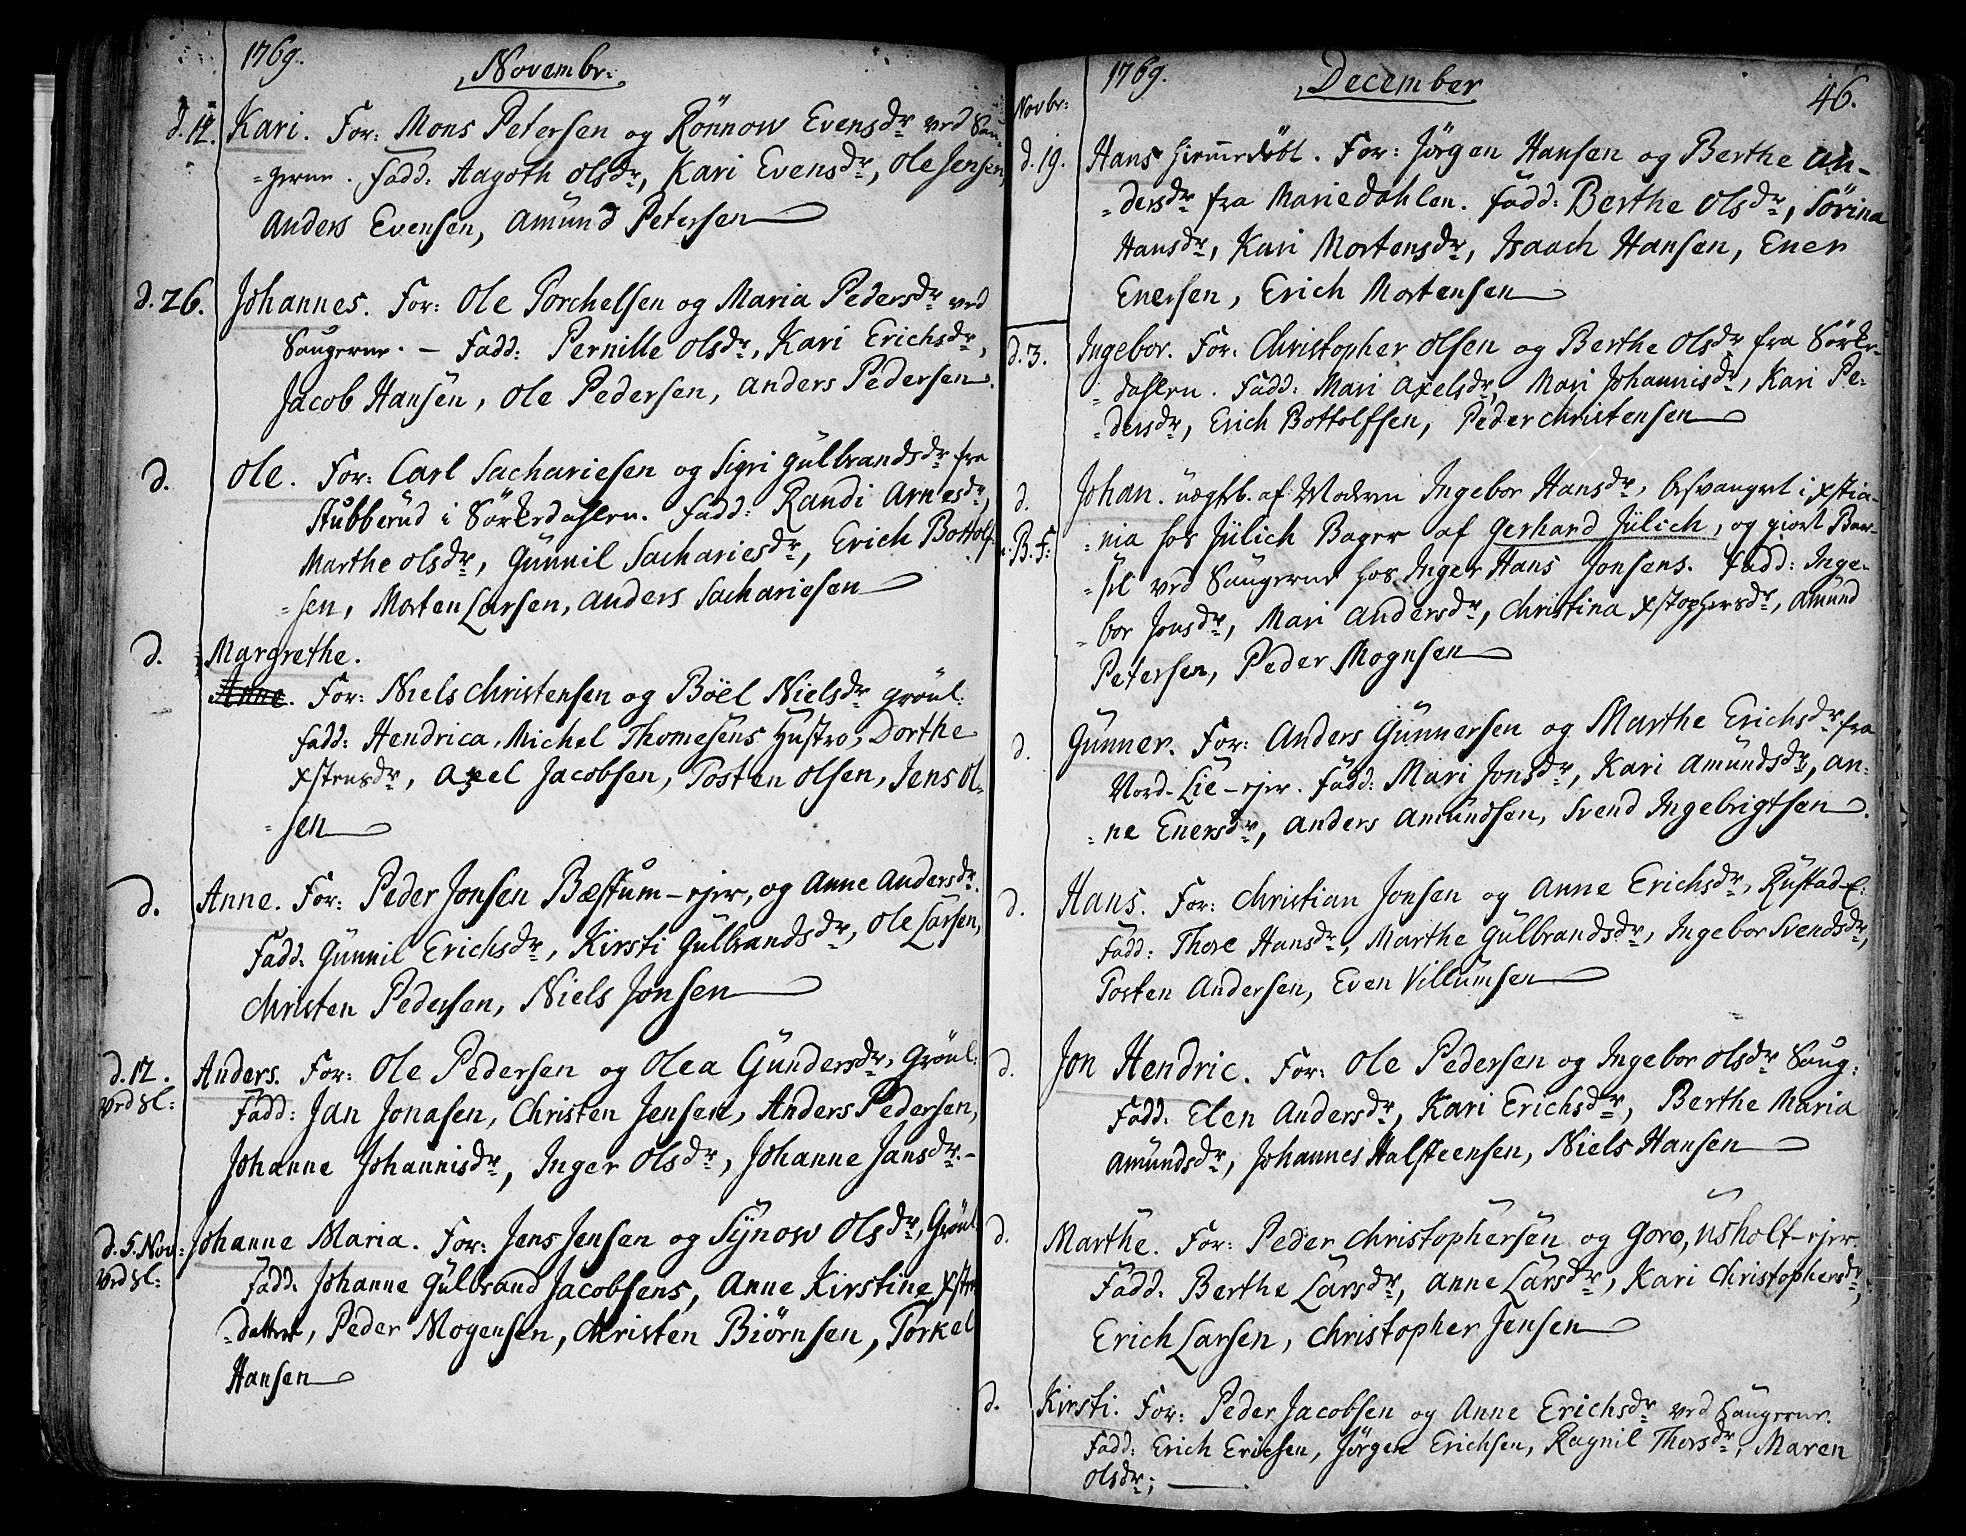 1769.
Novembr:
d. 12. Kari. For: Mons Petersen og Rönnow Evensdr ved Sau-
-gerne. Fadd: Aagoth Olsdr, Kari Evensdr, Ole Jensen,
Anders Evensen, Amund Petersen
d. 26. Johannes. For: Ole Torchelsen og Maria Pedersdr ved
Saugerne. – Fadd: Pernille Olsdr, Kari Erichsdr,
Jacob Hansen, Ole Pedersen, Anders Pedersen.
d. Ole. For: Carl Sachariesen og Sigri Gulbrandsdr fra
Stubberud i Sörkedahlen. Fadd: Randi Arnesdr,
Marthe Olsdr, Gunnil Sachariesdr, Erich Bottolf-
-sen, Morten Larsen, Anders Sachariesen
d. Margrethe.
Anne. For: Niels Christensen og Böel Nielsdr Grönl:
Fadd: Hendrica, Michel Thomesens Hustro, Dorthe
Xstensdr, Axel Jacobsen, Tosten Olsen, Jens Ol-
-sen
d. Anne. For: Peder Jonsen Bæstum-ejer, og Anne Andersdr.
Fadd: Gunnil Erichsdr, Kirsti Gulbrandsdr, Ole Larsen,
Christen Pedersen, Niels Jonsen
d. 12. Anders. For: Ole Pedersen og Olea Gundersdr, Grönl:
ved Sl: Fadd: Jan Jonasen, Christen Jensen, Anders Pedersen,
Johanne Johannisdr, Inger Olsdr, Johanne Jansdr.–
d. 5. Nov: Johanne Maria. For: Jens Jensen og Synow Olsdr, Grönl
ved Sl: Fadd. Johanne Gulbrand Jacobsens, Anne Kirstine Xsten
-datter, Peder Mogensen, Christen Biörnsen, Torkel
Hansen
1769.
December
46.
Novbr:
d. 19. Hans hiemmedöbt. For: Jörgen Hansen og Berthe An-
-dersdr fra Mariedahlen. Fadd: Berthe Olsdr, Sörina
Hansdr, Kari Mortensdr, Isaach Hansen, Ener
Enersen, Erich Mortensen
d. 3. Ingebor. For: Christopher Olsen og Berthe Olsdr fra Sörke-
-dahlen. Fadd: Mari Axelsdr, Mari Johannisdr, Kari Pe:
-dersdr, Erich Bottolfsen, Peder Christensen
d. Johan. uægtb. af Moderen Ingebor Hansdr, besvangret i Xstia-
B. F: -nia hos Jülich Bager af Gerhard Jülich, og giort Bar-
-sel ved Saugerne hos Inger Hans Jonsens. Fadd: Inge-
-bor Jonsdr, Mari Andersdr, Christina Xstophersdr, Amund
Petersen, Peder Mognsen
d. Gunner. For: Anders Gunnersen og Marthe Erichsdr fra
Nord-Lie-ejer. Fadd: Mari Jonsdr, Kari Amundsdr, An:
-ne Enersdr, Anders Amundsen, Svend Ingebrigtsen.
d. Hans. For: Christian Jonsen og Anne Erichsdr, Rustad-E:
Fadd: Thore Hansdr, Marthe Gulbrandsdr, Ingebor Svendsdr,
Tosten Andersen, Even Villumsen
d. Jon Hendric. For: Ole Pedersen og Ingebor Olsdr Saug:
Fadd. Elen Andersdr, Kari Erichsdr, Berthe Maria
Amundsdr, Johannes Halsteensen, Niels Hansen
d. Marthe. For: Peder Christophersen og Goro, Usholt-ejer
Fadd. Berthe Larsdr, Anne Larsdr, Kari Christophersdr,
Erich Larsen, Christopher Jensen
d. Kirsti. For: Peder Jacobsen og Anne Erichsdr ved Saugerne.
Fadd: Erich Ericsen, Jörgen Erichsen, Ragnil Thorsdr, Maren
Olsdr;